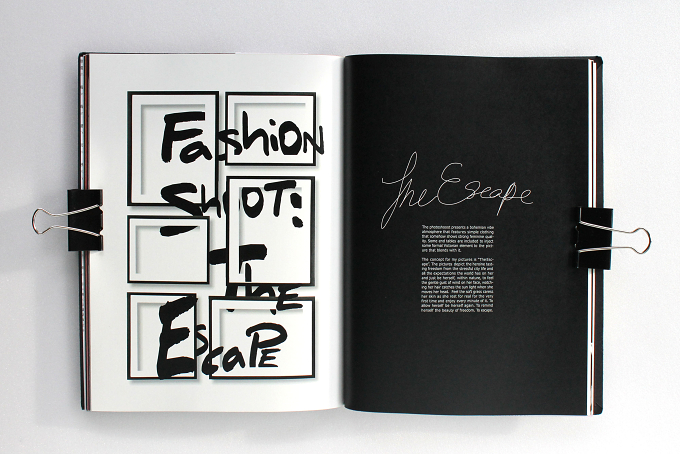 Fashion
Shoot:
The
Escape
The Escape
The photoshoot presents a bohemian vibe
atmosphere that features simple clothing
that somehow shows strong feminine qual-
ity. Some end tables are included to inject
some formal Victorian element to the pict-
ure that blends with it.
The concept for my pictures is "TheEsc-
ape". The pictures depict the heroine tast-
ing freedom from the stressful city life and
all the expectations the world has on her
and just be herself, within nature, to feel
the gentle gust of wind on her face, watch-
ing her hair catches the sun light when she
moves her head. Feel the soft grass caress
her skin as she rest for real for the very
first time and enjoy every minute of it. To
allow herself be herself again. To remind
herself the beauty of freedom. To escape.